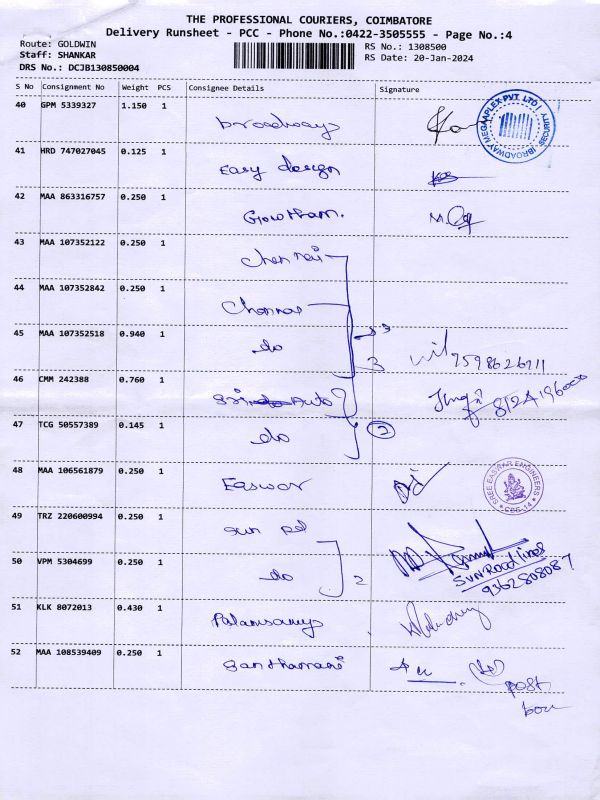 THE PROFESSIONAL COURIERS, COIMBATORE
Delivery Runsheet - PCC - Phone No.:0422-3505555 - Page No.:4
Route: GOLDWIN
Staff: SHANKAR
DRS No.: DCJB130850004
RS No.: 1308500
RS Date: 20-Jan-2024
S No Consignment No Weight PCS Consignee Details Signature
40 GPM 5339327 1.150 1 Broadways
BROADWAY MEGAAPLEX PVT. LTD SECURITY
41 HRD 747027045 0.125 1 Easy design
42 MAA 863316757 0.250 1 Gowtham.
43 MAA 107352122 0.250 1 Chennai
44 MAA 107352842 0.250 1 Chennai
45 MAA 107352518 0.940 1 do 3
46 CMM 242388 0.760 1 Auto
47 TCG 50557389 0.145 1 do 2
48 MAA 106561879 0.250 1 Easwar
SREE EASWAR ENGINEERS CBE-14
49 TRZ 220600994 0.250 1 Sun
50 VPM 5304699 0.250 1 do 2 SUN Roadlines
9362808087
51 KLK 8072013 0.430 1 Palanisamy
52 MAA 108539409 0.250 1 Santhamani
post
box